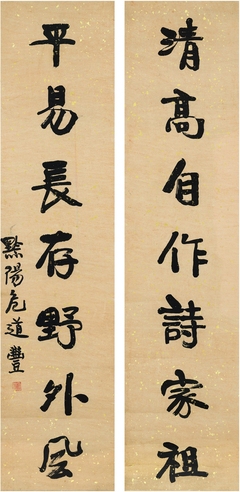 清高自作詩家祖
平易長存野外風
黟陽危道豐